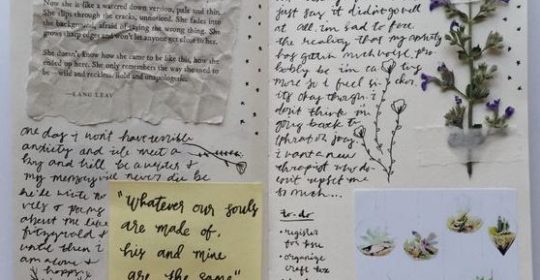 Now she is like a watered down version, pale and thin.
She slips through the cracks, unnoticed. She fades into
the background, afraid of saying the wrong thing. She
grows sharp edges and won't let anyone get close to her.
She doesn't know how she came to be like this, how she
ended up here. She only remembers the way she used to
be—wild and reckless, bold and unapologetic.
—LANG LEAV
one day i won't have terrible
anxiety and i'll meet a
boy and he'll be a writer &
my memory will never die be
he'll write no
vels & poems
about me like
fitzgerald &
until then i
am alone &
happy
"whatever our souls
are made of,
his and mine
are the same"
just say it didn't go well
at all. i'm sad to face
the reality that my anxiety
has gotten much worse. pro
bably be i'm
more so i feel
it's okay though. i
don't think im
going back to
i want a new
therapist who do
esn't upset me
so much...
to-do
• register
for
• organize
craft box